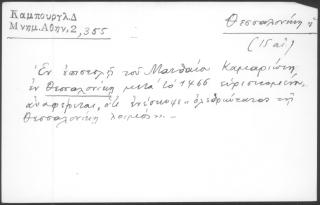 Καμπούρογλ. Δ
Μνημ. Αθην, 2, 355
Θεσσαλονίκη
(15 αἰ)
Ἐν ἐπιστολῇ τοῦ Ματθαίου Καμαριώτη
ἐν Θεσσαλονίκῃ μετὰ τὸ 1466 εὑρισκομένου,
ἀναφέρεται, ὅτι ἐνέσκηψε "ὀλεθριώτατος τῇ
Θεσσαλονίκῃ λοιμὸς...